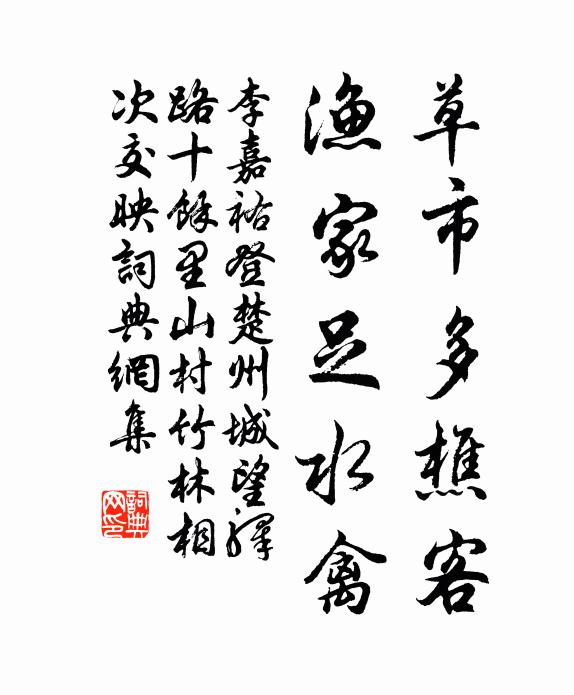 草市多樵客
渔家足水禽
李嘉祐登楚州城望驛
路十餘里山村竹林相
次交映詞典網集
詞典
网印